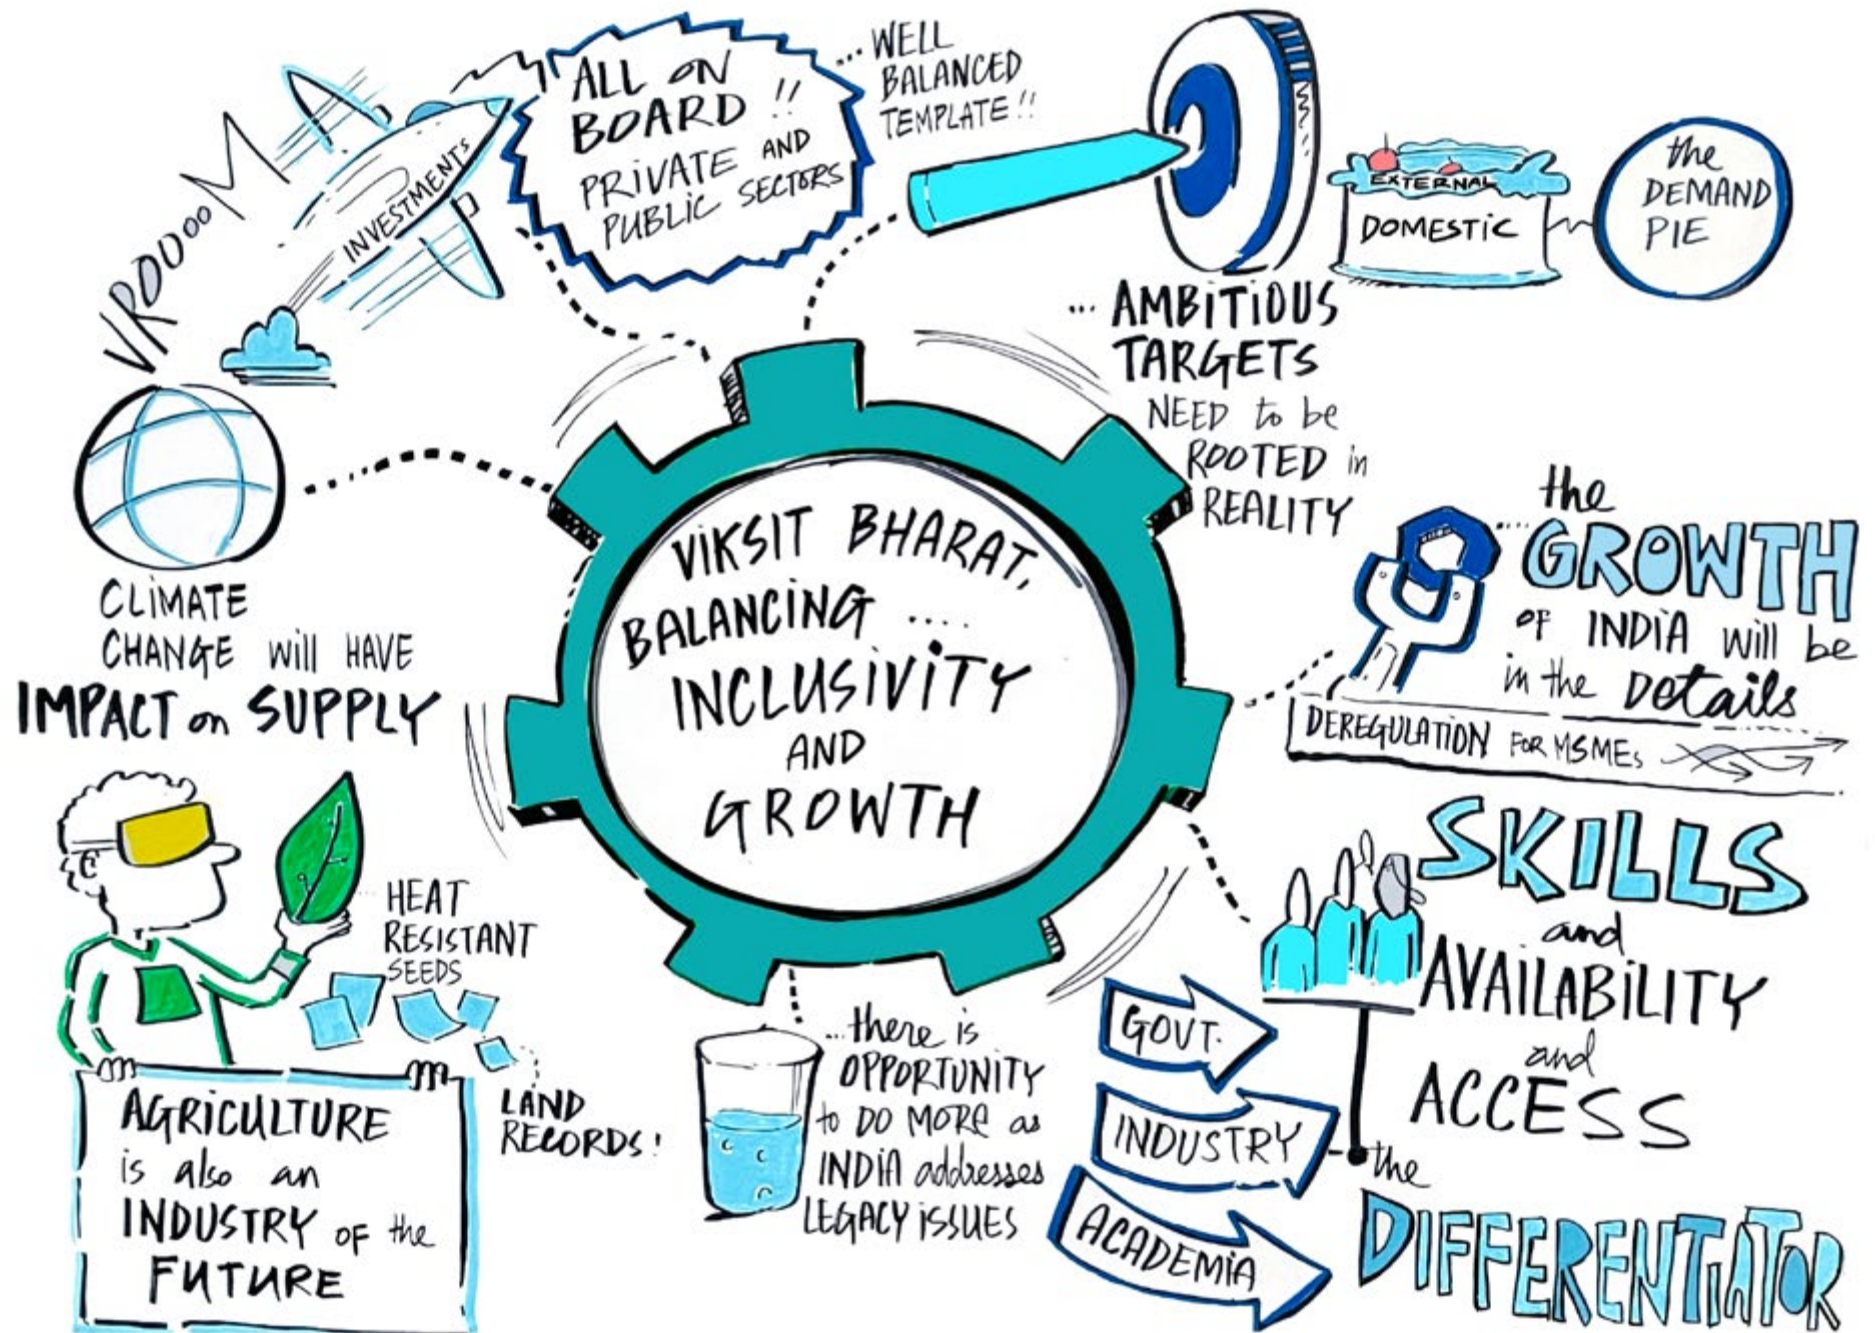 VROOOOOOM
INVESTMENTS
ALL ON
BOARD !!
PRIVATE AND
PUBLIC SECTORS
... WELL
BALANCED
TEMPLATE!!
EXTERNAL
DOMESTIC
the
DEMAND
PIE
... AMBITIOUS
TARGETS
NEED to be
ROOTED in
REALITY
CLIMATE
CHANGE will HAVE
IMPACT on SUPPLY
VIKSIT BHARAT,
BALANCING ....
INCLUSIVITY
AND
GROWTH
.... the
GROWTH
OF INDIA will be
in the Details
DEREGULATION FOR MSMEs
HEAT
RESISTANT
SEEDS
LAND
RECORDS!
AGRICULTURE
is also an
INDUSTRY OF the
FUTURE
... there is
OPPORTUNITY
to DO MORE as
INDIA addresses
LEGACY ISSUES
GOVT.
INDUSTRY
ACADEMIA
SKILLS
and
AVAILABILITY
and
ACCESS
the
DIFFERENTIATOR